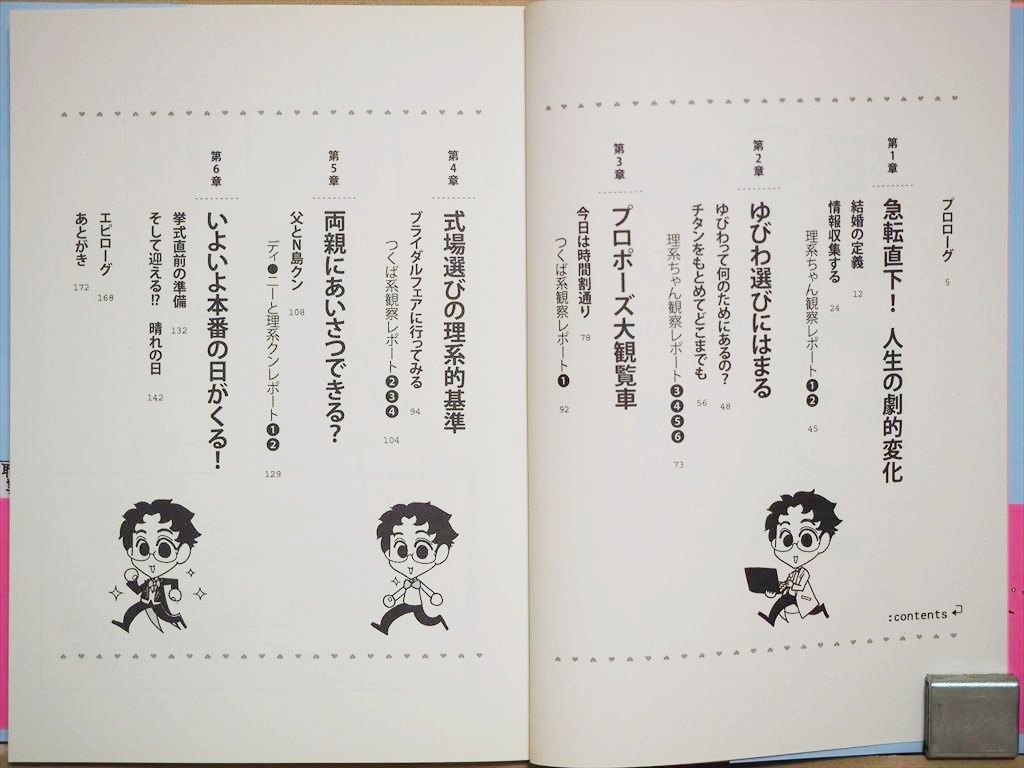 プロローグ 5
第1章
急転直下! 人生の劇的変化
結婚の定義 12
情報収集する 24
理系ちゃん観察レポート❶❷ 45
第2章
ゆびわ選びにはまる
ゆびわって何のためにあるの? 48
チタンをもとめてどこまでも 56
理系ちゃん観察レポート❸❹❺❻ 73
第3章
プロポーズ大観覧車
今日は時間割通り 78
つくば系観察レポート❶ 92
:contents
第4章
式場選びの理系的基準
ブライダルフェアに行ってみる 94
つくば系観察レポート❷❸❹ 104
第5章
両親にあいさつできる?
父とN島クン 108
ディ●ニーと理系クンレポート❶❷ 129
第6章
いよいよ本番の日がくる!
挙式直前の準備 132
そして迎える!? 晴れの日 142
エピローグ 168
あとがき 172